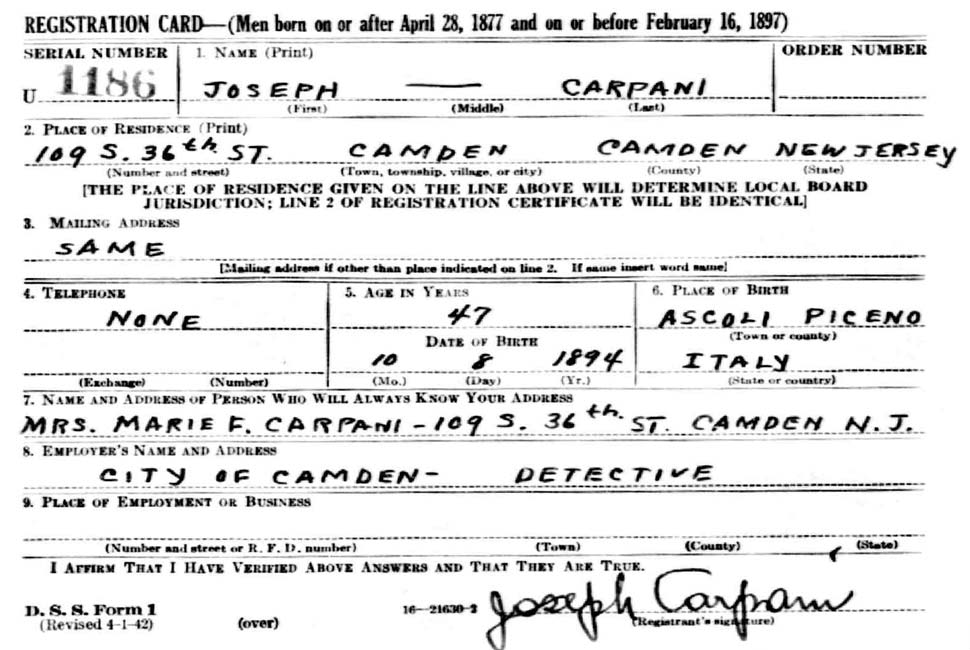 REGISTRATION CARD—(Men born on or after April 28, 1877 and on or before February 16, 1897)
SERIAL NUMBER 1. NAME (Print) ORDER NUMBER
U 1186 JOSEPH —— CARPANI
(First) (Middle) (Last)
2. PLACE OF RESIDENCE (Print)
109 S. 36th ST. CAMDEN CAMDEN NEW JERSEY
(Number and street) (Town, township, village, or city) (County) (State)
[THE PLACE OF RESIDENCE GIVEN ON THE LINE ABOVE WILL DETERMINE LOCAL BOARD
JURISDICTION; LINE 2 OF REGISTRATION CERTIFICATE WILL BE IDENTICAL]
3. MAILING ADDRESS
SAME
[Mailing address if other than place indicated on line 2. If same insert word same]
4. TELEPHONE 5. AGE IN YEARS 6. PLACE OF BIRTH
NONE 47 ASCOLI PICENO
DATE OF BIRTH (Town or county)
10 8 1894 ITALY
(Exchange) (Number) (Mo.) (Day) (Yr.) (State or country)
7. NAME AND ADDRESS OF PERSON WHO WILL ALWAYS KNOW YOUR ADDRESS
MRS. MARIE F. CARPANI - 109 S. 36th. ST. CAMDEN N.J.
8. EMPLOYER'S NAME AND ADDRESS
CITY OF CAMDEN - DETECTIVE
9. PLACE OF EMPLOYMENT OR BUSINESS
(Number and street or R. F. D. number) (Town) (County) (State)
I AFFIRM THAT I HAVE VERIFIED ABOVE ANSWERS AND THAT THEY ARE TRUE.
D. S. S. Form 1 16—21630-2 Joseph Carpani
(Revised 4-1-42) (over) (Registrant's signature)